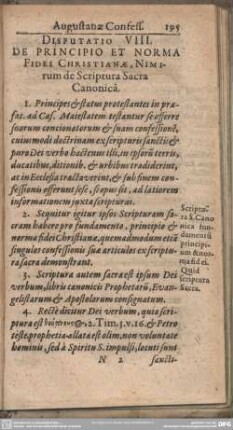 Augustanæ Confess. 195
DISPUTATIO VIII.
DE PRINCIPIO ET NORMA
FIDEI CHRISTIANÆ, Nimi-
rum de Scriptura Sacra
Canonicâ.
1. Principes & status protestantes in præ-
fat. ad Cæs. Maiestatem testantur se offerre
suarum concionatorum & suam confessionẽ,
cuiusmodi doctrinam ex scripturis sanctis &
puro Dei verbo hactenus illi, in ipsorũ terris,
ducatibus, ditionib. & urbibus tradiderint,
at in Ecclesia tractaverint, & sub finem con-
fessionis offerunt sese, si opus sit, ad latiorem
informationem juxta scripturas.
2. Sequitur igitur ipsos Scripturam sa-
cram habere pro fundamento, principio &
norma fidei Christianæ, quemadmodum etiã
singulos confessionis suæ articulos ex scriptu-
ra sacra demonstrant.
Scriptu-
ra S. Cano
nica fun-
damentũ
principi-
um & nor-
ma fidei.
Quid
scriptura
Sacra.
3. Scriptura autem sacra est ipsum Dei
verbum, libris canonicis Prophetarũ, Evan-
gelistarum & Apostolorum consignatum.
4. Rectè dicitur Dei verbum, quia scri-
ptura est 2. Tim. 3. v. 16. & Petro
teste, prophetia allata est olim, non voluntate
hominis, sed à Spiritu S. impulsi, locuti sunt
N 2 sancti-